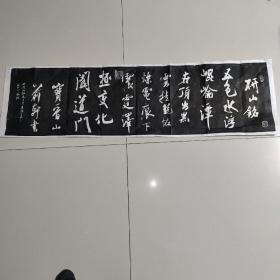 研山銘
五色水浮
崑崙潭
在頂出黑
雲挂龍怪
爍電痕下
震霆澤
極變化
闔道門
寶晉山
前軒書